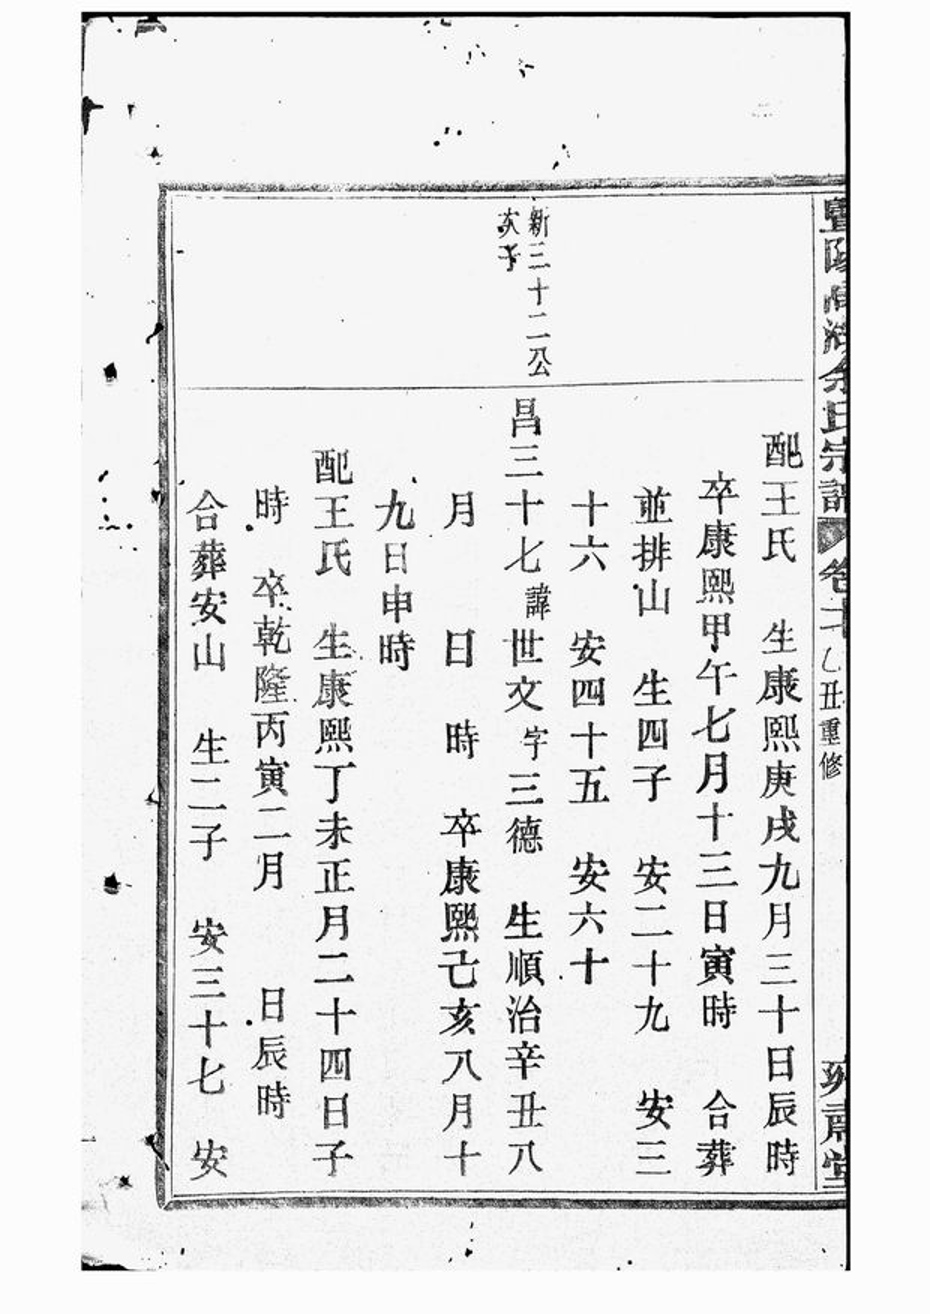 暨陽高湖余氏宗譜 卷十 乙丑重修
配王氏 生康熙庚戌九月三十日辰時
卒康熙甲午七月十三日寅時 合葬
並排山 生四子 安二十九 安三
十六 安四十五 安六十
新三十二公
次子
昌三十七 諱世文 字三德 生順治辛丑八
月 日 時 卒康熙己亥八月十
九日申時
配王氏 生康熙丁未正月二十四日子
時 卒乾隆丙寅二月 日辰時
合葬安山 生二子 安三十七 安